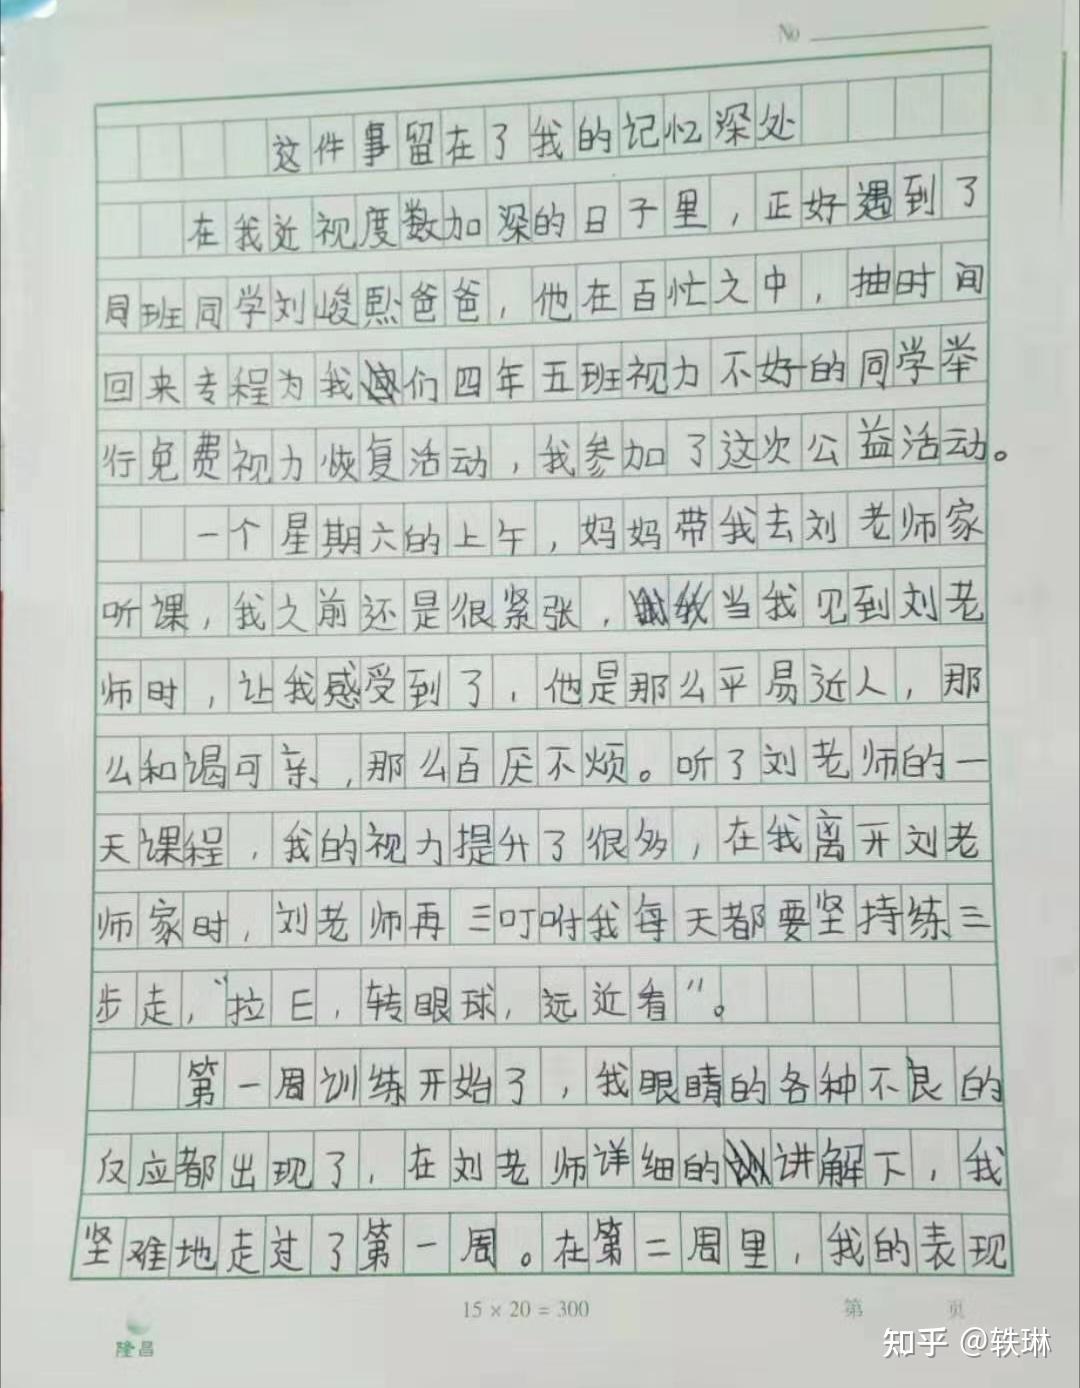 No
这件事留在了我的记忆深处
在我近视度数加深的日子里，正好遇到了
同班同学刘峻熙爸爸，他在百忙之中，抽时间
回来专程为我们四年五班视力不好的同学举
行免费视力恢复活动，我参加了这次公益活动。
一个星期六的上午，妈妈带我去刘老师家
听课，我之前还是很紧张，当我见到刘老
师时，让我感受到了，他是那么平易近人，那
么和谒可亲，那么百厌不烦。听了刘老师的一
天课程，我的视力提升了很多，在我离开刘老
师家时，刘老师再三叮咐我每天都要坚持练三
步走，“拉E，转眼球，远近看”。
第一周训练开始了，我眼睛的各种不良的
反应都出现了，在刘老师详细的讲解下，我
坚难地走过了第一周。在第二周里，我的表现
15×20=300
第 页
隆昌
知乎 @轶琳